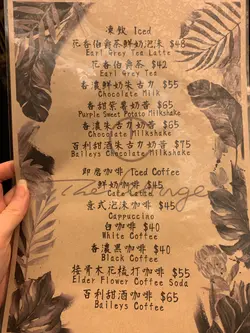 凍飲 Iced
花香伯爵茶鮮奶泡沫 $48
Earl Grey Tea Latte
花香伯爵茶 $42
Earl Grey Tea
香濃鮮奶朱古力 $55
Chocolate Milk
香甜紫薯奶昔 $65
Purple Sweet Potato Milkshake
香濃朱古力奶昔 $65
Chocolate Milkshake
百利甜酒朱古力奶昔 $75
Baileys Chocolate Milkshake
即磨咖啡 Iced Coffee
鮮奶咖啡 $45
Cafe Latte
意式泡沫咖啡 $45
Cappuccino
白咖啡 $40
White Coffee
香濃黑咖啡 $40
Black Coffee
接骨木花梳打咖啡 $55
Elder Flower Coffee Soda
百利甜酒咖啡 $65
Baileys Coffee